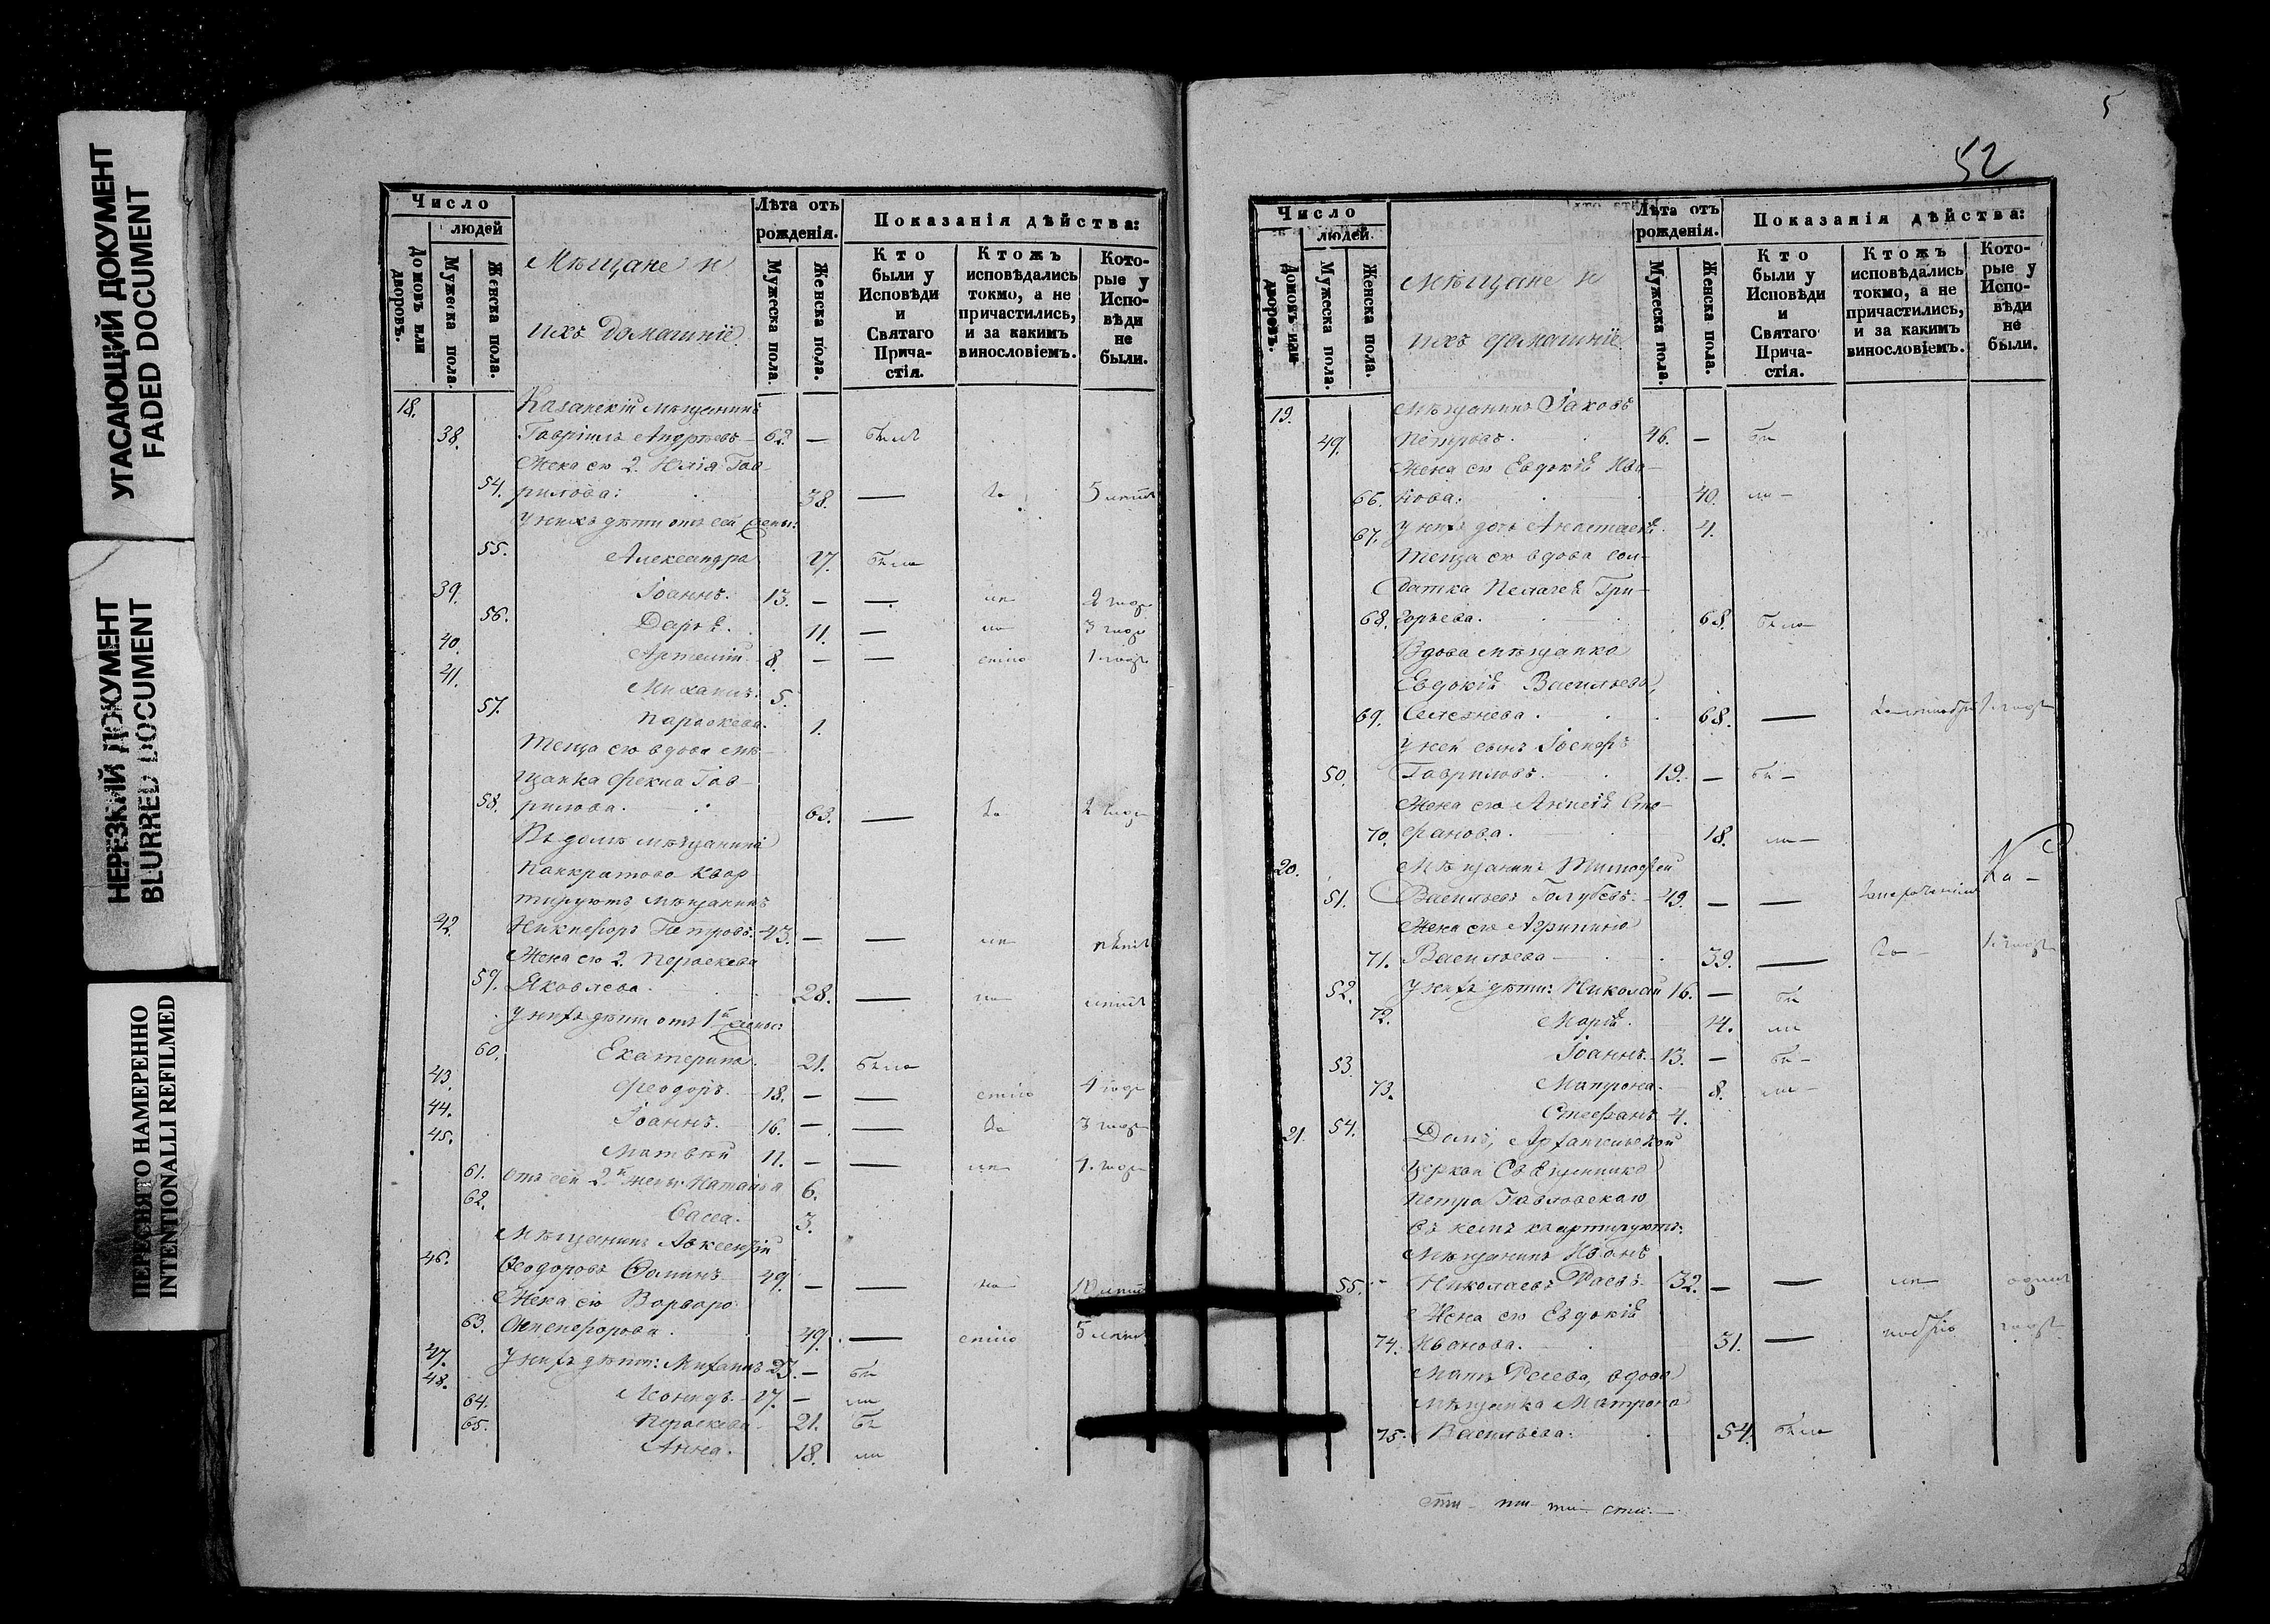 УГАСАЮЩИЙ ДОКУМЕНТ
FADED DOCUMENT
НЕРЕЗКИЙ ДОКУМЕНТ
BLURRED DOCUMENT
ПЕРЕСНЯТО НАМЕРЕННО
INTENTIONALLI REFILMED
Число
людей
Домовъ или дворовъ.
Мужеска пола.
Женска пола.
Мѣщане и
ихъ домашніе
Лѣта отъ рожденія.
Мужеска пола.
Женска пола.
Показанія дѣйства:
Кто были у Исповѣди и Святаго Причастія.
Ктожъ исповѣдались токмо, а не причастились, и за какимъ винословіемъ.
Которые у Исповѣди не были.
18. Казанскій мѣщанинъ
38. Гавріилъ Андреевъ 62. — былъ
Жена его 2. Юлія Гав-
54. рилова: 38. — 5 лѣтъ
У нихъ дѣти отъ сей жены:
55. Александра 17. была
39. Іоаннъ. 13. — — 2 года
56. Дарья. 11. — 3 года
40. Артемій. 8. — — 1 годъ
41. Михаилъ. 5.
57. Параскева. 1.
Теща его вдова мѣ-
щанка Фекла Гав-
58. рилова. 63. — 2 года
Въ домѣ мѣщанина
Панкратова квар
тируютъ мѣщанинъ
42. Никифоръ Петровъ. 43. — —
Жена его 2. Параскева
59. Яковлева. 28. —
У нихъ дѣти отъ 1й жены:
60. Екатерина. 21. была
43. Феодоръ. 18. — —
44. Іоаннъ. 16. — — 3 года
45. Матвѣй 11. — —
61. отъ сей 2й жены Наталья 6.
62. Васса. 3.
Мѣщанинъ Авксентій
46. Феодоровъ Фаминъ 49. — —
Жена его Варвара
63. Никифорова. 49. — 5 лѣтъ
47. У нихъ дѣти: Михаилъ 23. —
48. Леонидъ. 17. —
64. Параскева 21.
65. Анна. 18.
5
52
Число
людей.
Домовъ или дворовъ.
Мужеска пола.
Женска пола.
Мѣщане и
ихъ домашніе
Лѣта отъ рожденія.
Мужеска пола.
Женска пола.
Показанія дѣйства:
Кто были у Исповѣди и Святаго Причастія.
Ктожъ исповѣдались токмо, а не причастились, и за какимъ винословіемъ.
Которые у Исповѣди не были.
19. Мѣщанинъ Іаковъ
49. Петровъ. 46. —
Жена его Евдокія Ива-
66. нова. 40.
67. У нихъ дочь Анастасія. 4.
Теща его вдова сол-
датка Пелагея Гри-
68. горьева. 68. была
Вдова мѣщанка
Евдокія Васильева
69. Селезнева. 68. —
У ней сынъ Іосифъ
50. Гавриловъ. 19. —
Жена его Анисія Сте-
70. фанова. 18.
20. Мѣщанинъ Тимофей
51. Васильевъ Голубевъ. 49. — —
Жена его Агрипина
71. Васильева 39. —
52. У нихъ дѣти: Николай 16. —
72. Марія. 14.
53. Іоаннъ. 13. —
73. Матрона. 8.
54. Стефанъ. 4.
21. Домъ, Архангельской
церкви Священника
Петра Павловскаго
въ немъ квартируютъ:
Мѣщанинъ Иванъ
55. Николаевъ Раевъ. 32. — —
Жена его Евдокія
74. Иванова. 31. —
Мать Раева, вдова
мѣщанка Матрона
75. Васильева. 54. была